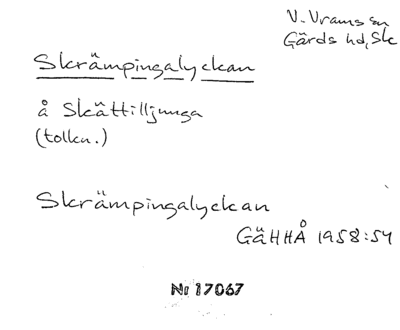 V. Vrams sn
Gärds hd, Sk
Skrämpingalyckan
å Skättilljunga
(tolkn.)
Skrämpingalyckan
GäHHÅ 1958:54
Nr 17067